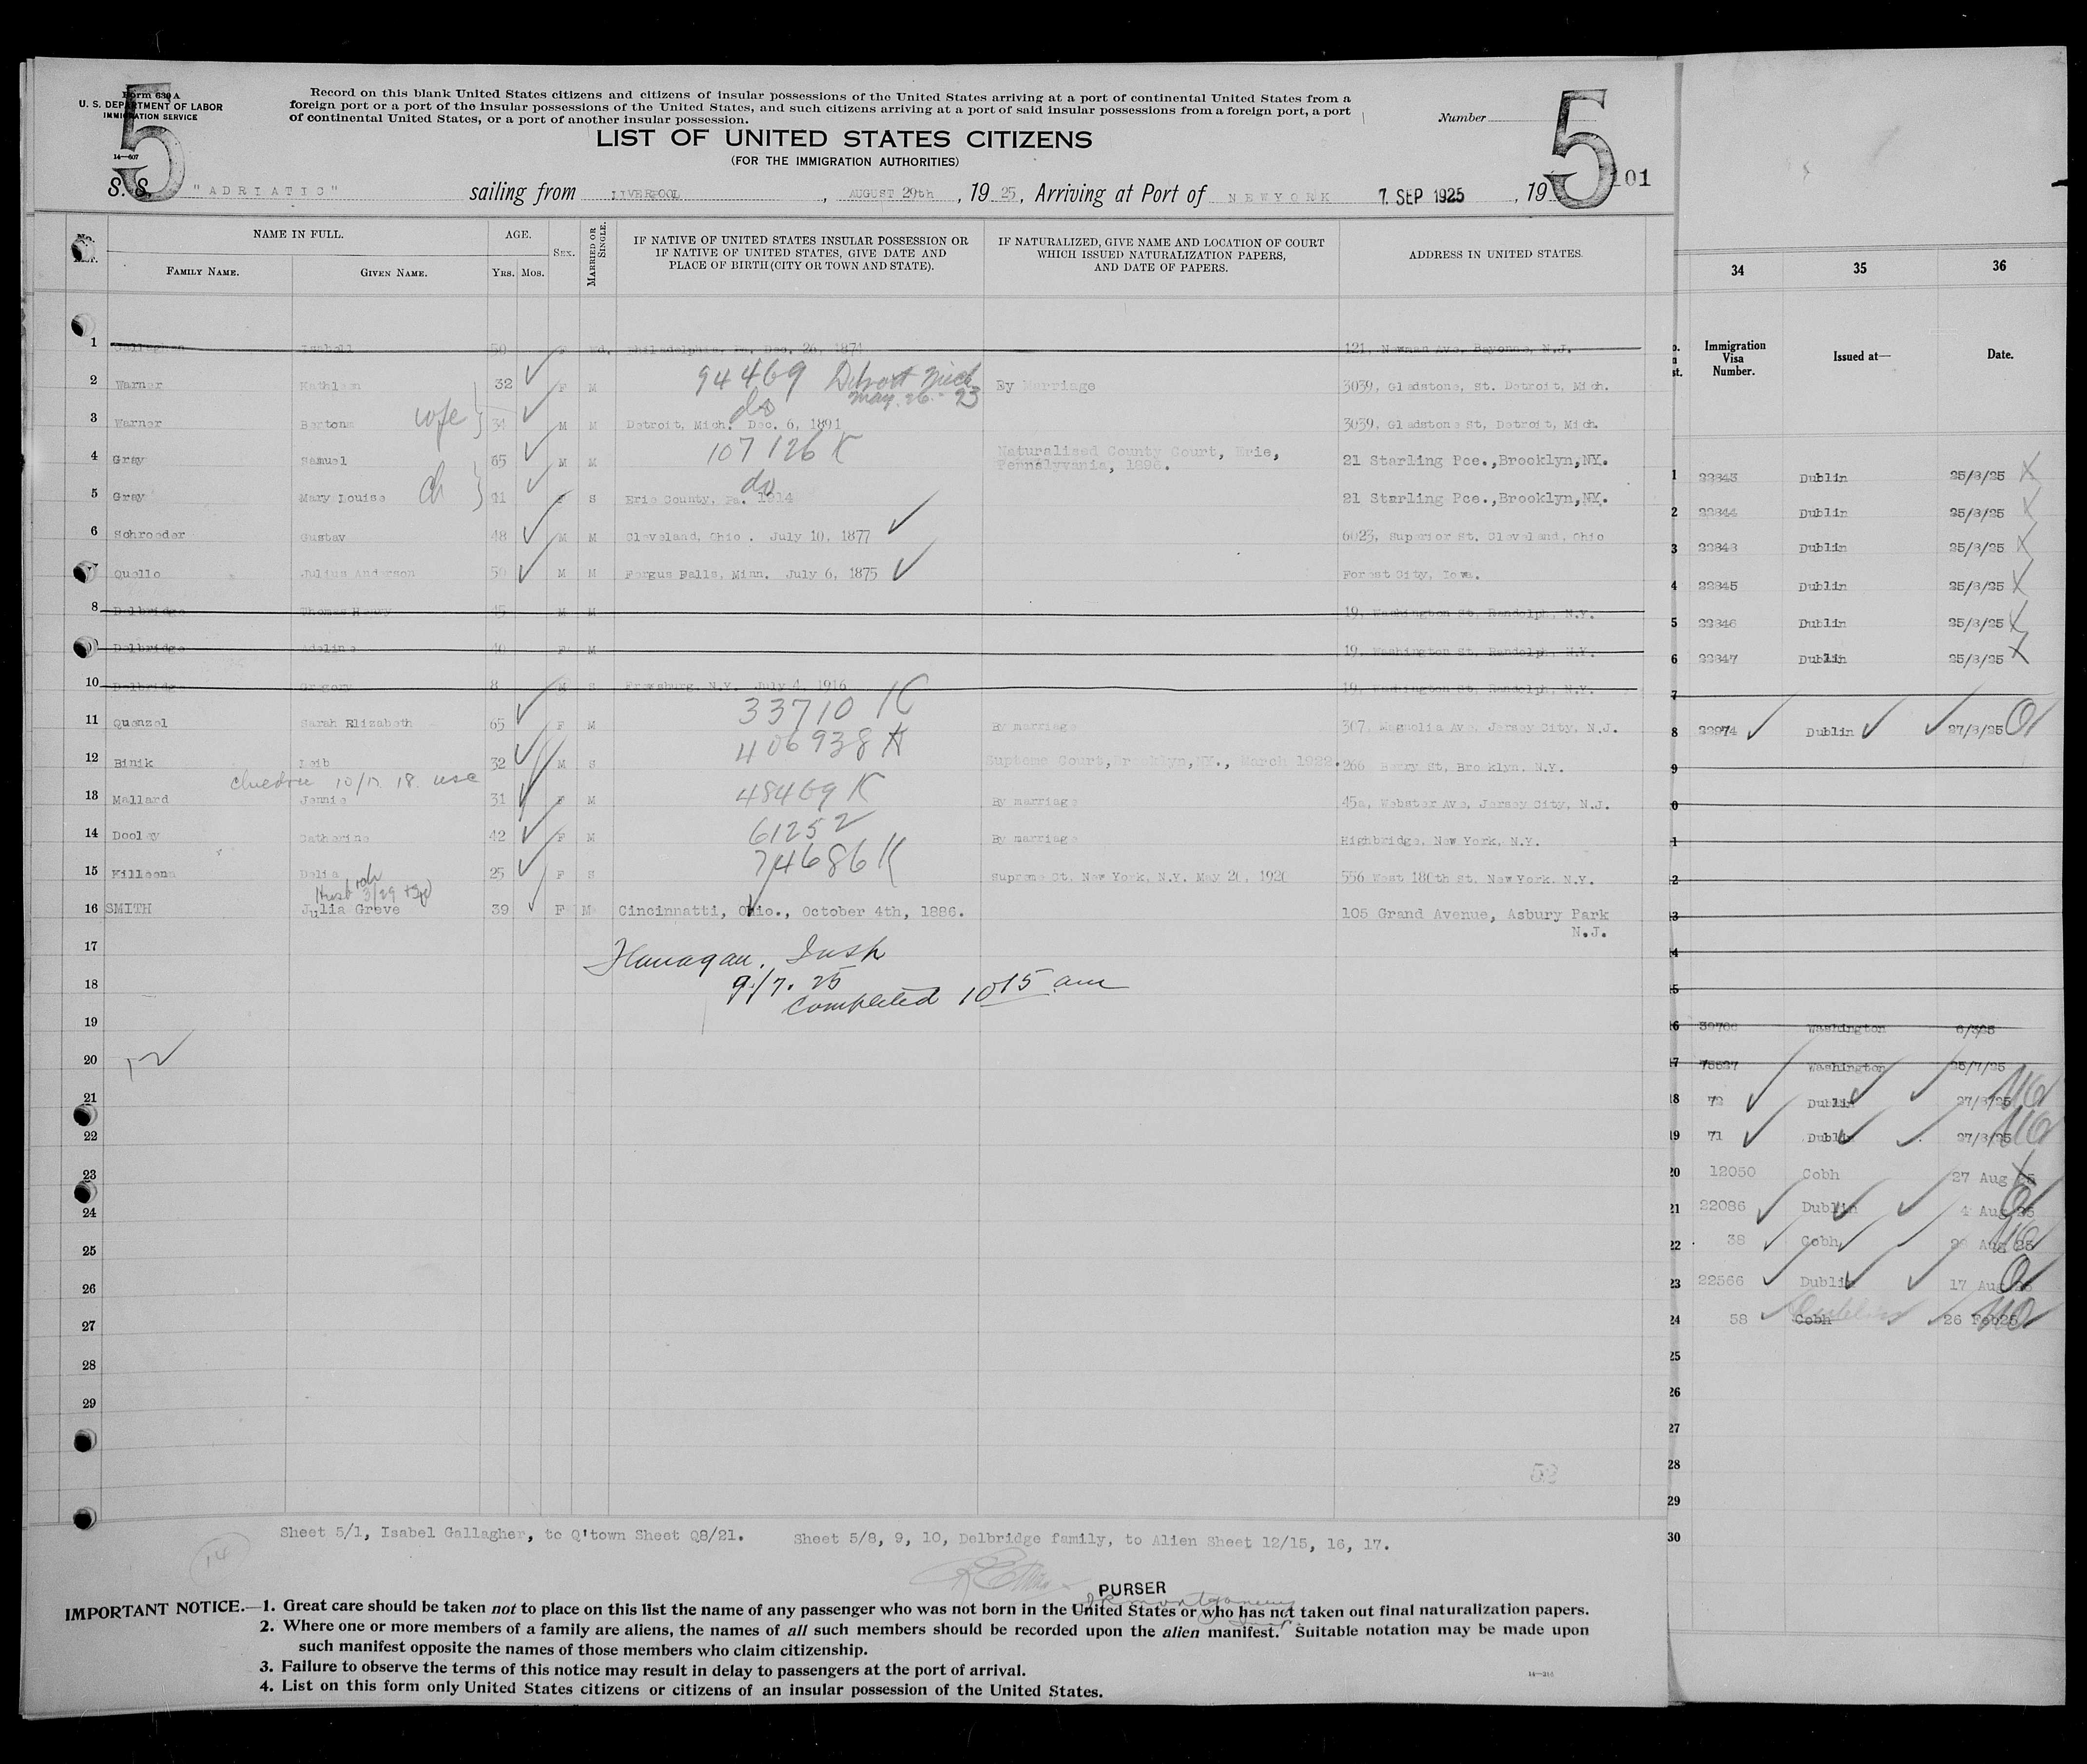 Form 630 A
U. S. DEPARTMENT OF LABOR
IMMIGRATION SERVICE
14—607
5
Record on this blank United States citizens and citizens of insular possessions of the United States arriving at a port of continental United States from a
foreign port or a port of the insular possessions of the United States, and such citizens arriving at a port of said insular possessions from a foreign port, a port
of continental United States, or a port of another insular possession.
Number
5
101
LIST OF UNITED STATES CITIZENS
(FOR THE IMMIGRATION AUTHORITIES)
S. S. "ADRIATIC" sailing from LIVERPOOL, AUGUST 29th, 1925, Arriving at Port of NEWYORK 7 SEP 1925, 19
NAME IN FULL. AGE. SEX. MARRIED OR SINGLE. IF NATIVE OF UNITED STATES INSULAR POSSESSION OR IF NATIVE OF UNITED STATES, GIVE DATE AND PLACE OF BIRTH (CITY OR TOWN AND STATE). IF NATURALIZED, GIVE NAME AND LOCATION OF COURT WHICH ISSUED NATURALIZATION PAPERS, AND DATE OF PAPERS. ADDRESS IN UNITED STATES.
FAMILY NAME. GIVEN NAME. YRS. MOS.
1 Gallagher Isabell 50 F Wd. Philadelphia, Pa. Dec. 26, 1874 121, Newman Ave. Bayonne, N.J.
94469 Detroit Mich May. 26 - 23
2 Warner Kathleen 32 F M By Marriage 3039, Gladstone, St. Detroit, Mich.
wife do
3 Warner 34 M M Detroit, Mich. Dec. 6, 1891 3039, Gladstone St, Detroit, Mich.
107126 K
4 Gray Samuel 65 M M Naturalised County Court, Erie, Pennsylvania, 1896. 21 Starling Pce.,Brooklyn,NY.
ch do
5 Gray Mary Louise 11 F S Erie County, Pa. 1914 21 Starling Pce.,Brooklyn,NY.
6 Schroeder Gustav 48 M M Cleveland, Ohio. July 10, 1877 6023, Superior St. Cleveland, Ohio
7 Quello Julius Anderson 50 M M Fergus Falls, Minn. July 6, 1875 Forest City, Iowa.
8 Delbridge Thomas Henry 45 M M 19, Washington St. Randolph, N.Y.
9 Delbridge Adeline 40 F M 19, Washington St. Randolph, N.Y.
10 Delbridge Gregory 8 M S Frewsburg, N.Y. July 4, 1916 19, Washington St. Randolph, N.Y.
33710 K
11 Quenzel Sarah Elizabeth 65 F M By marriage 307, Magnolia Ave. Jersey City, N.J.
406938
12 Binik Leib 32 M S Supreme Court,Brooklyn,NY., March 1922. 266 Berry St, Brooklyn, N.Y.
10/17 18 usc
48469 K
13 Mallard Jennie 31 F M By marriage 45a, Webster Ave, Jersey City, N.J.
61252
14 Dooley Catherine 42 F M By marriage Highbridge, New York, N.Y.
74686 K
15 Killeen Delia 25 F S Supreme Ct. New York, N.Y. May 20, 1920 556 West 180th St. New York, N.Y.
Husb
16 SMITH Julia Greve 39 F M Cincinnatti, Ohio., October 4th, 1886. 105 Grand Avenue, Asbury Park N.J.
17
Flanagan, Insp
18
9/7.25
Completed 10 15 am
19
20
21
22
23
24
25
26
27
28
29
52
14
Sheet 5/1, Isabel Gallagher, to Q'town Sheet Q8/21. Sheet 5/8, 9, 10, Delbridge family, to Alien Sheet 12/15, 16, 17.
PURSER
IMPORTANT NOTICE.—1. Great care should be taken not to place on this list the name of any passenger who was not born in the United States or who has not taken out final naturalization papers.
2. Where one or more members of a family are aliens, the names of all such members should be recorded upon the alien manifest. Suitable notation may be made upon
such manifest opposite the names of those members who claim citizenship.
3. Failure to observe the terms of this notice may result in delay to passengers at the port of arrival.
4. List on this form only United States citizens or citizens of an insular possession of the United States.
34 35 36
Immigration Visa Number. Issued at— Date.
1 22343 Dublin 25/8/25
2 22344 Dublin 25/8/25
3 22348 Dublin 25/8/25
4 22345 Dublin 25/8/25
5 22346 Dublin 25/8/25
6 22347 Dublin 25/8/25
7
8 22974 Dublin 27/8/25
9
0
1
2
3
4
5
6 30766 Washington 6/3/25
7 75527 Washington 25/7/25
18 72 Dublin 27/8/25
19 71 Dublin 27/8/25
20 12050 Cobh 27 Aug 25
21 22086 Dublin 4 Aug 25
22 38 Cobh Aug 25
23 22566 Dublin 17 Aug 25
24 58 Cobh Dublin 26 Feb 25
25
26
27
28
29
30